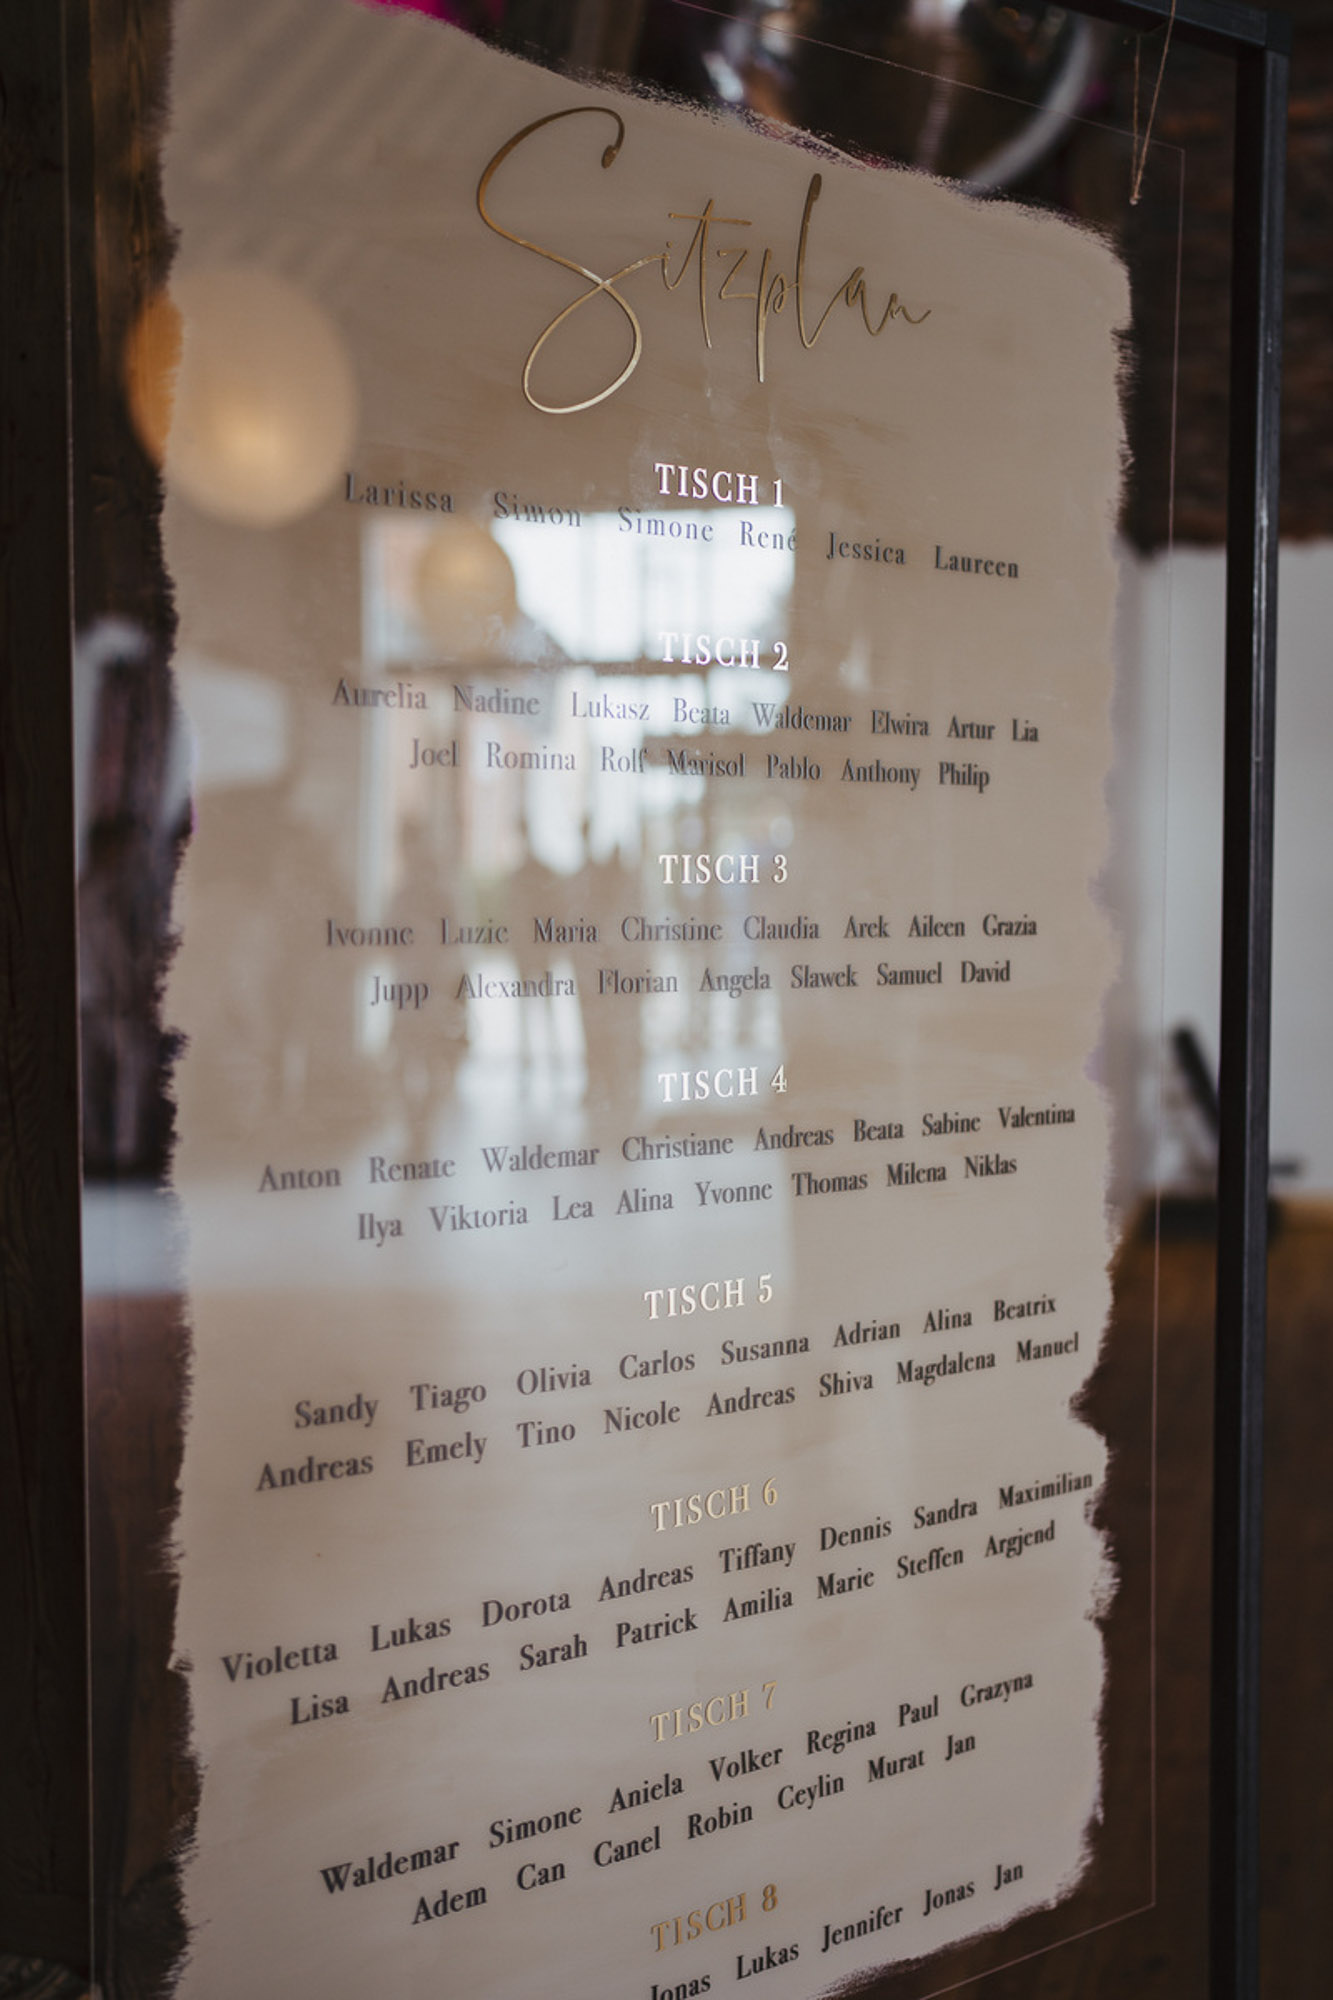 Sitzplan
TISCH 1
Larissa Simon Simone René Jessica Laureen
TISCH 2
Aurelia Nadine Lukasz Beata Waldemar Elwira Artur Lia
Joel Romina Rolf Marisol Pablo Anthony Philip
TISCH 3
Ivonne Luzie Maria Christine Claudia Arek Aileen Grazia
Jupp Alexandra Florian Angela Slawek Samuel David
TISCH 4
Anton Renate Waldemar Christiane Andreas Beata Sabine Valentina
Ilya Viktoria Lea Alina Yvonne Thomas Milena Niklas
TISCH 5
Sandy Tiago Olivia Carlos Susanna Adrian Alina Beatrix
Andreas Emely Tino Nicole Andreas Shiva Magdalena Manuel
TISCH 6
Violetta Lukas Dorota Andreas Tiffany Dennis Sandra Maximilian
Lisa Andreas Sarah Patrick Amilia Marie Steffen Argjend
TISCH 7
Waldemar Simone Aniela Volker Regina Paul Grazyna
Adem Can Canel Robin Ceylin Murat Jan
TISCH 8
Jonas Lukas Jennifer Jonas Jan